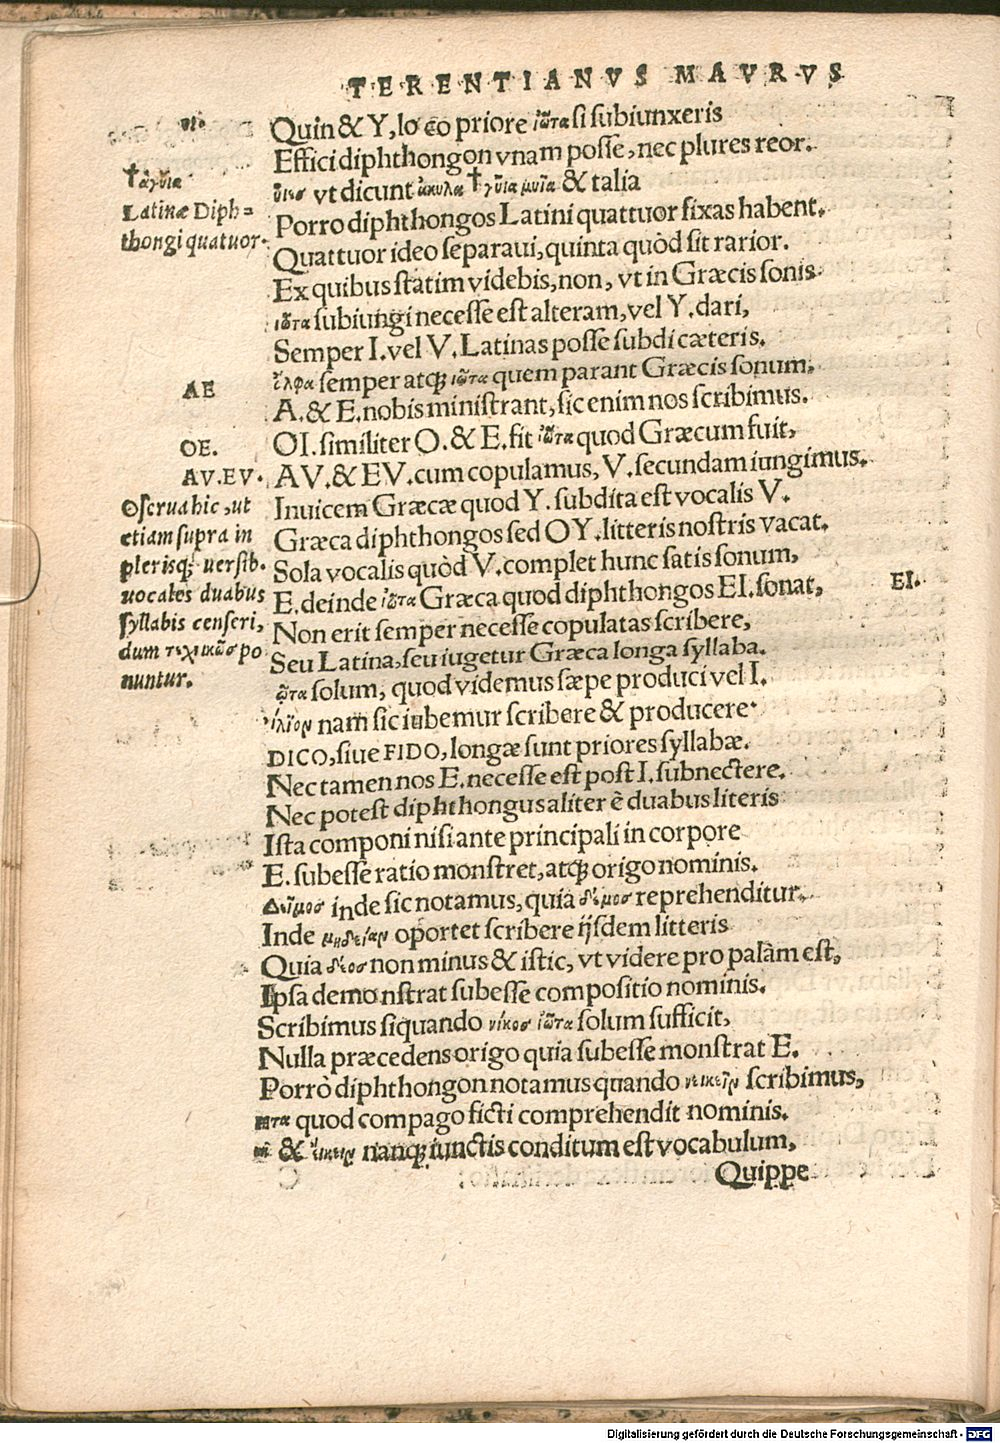 TERENTIANVS MAVRVS
Quin & Y, lo co priore ἰῶτα si subiunxeris
Effici diphthongon vnam posse, nec plures reor.
vt dicunt ἀκυλα † γῦια μυῖα & talia
Porro diphthongos Latini quattuor fixas habent.
Quattuor ideo separaui, quinta quòd sit rarior.
Ex quibus statim videbis, non, vt in Græcis sonis
ἰῶτα subiungi necesse est alteram, vel Y. dari,
Semper I. vel V. Latinas posse subdi cæteris.
semper atq; ἰῶτα quem parant Græcis sonum,
A. & E. nobis ministrant, sic enim nos scribimus.
OI. similiter O. & E. fit ἰῶτα quod Græcum fuit,
AV. & EV. cum copulamus, V. secundam iungimus.
Inuicem Græcæ quod Y. subdita est vocalis V.
Græca diphthongos sed OY. litteris nostris vacat.
Sola vocalis quòd V. complet hunc satis sonum,
E. deinde ἰῶτα Græca quod diphthongos EI. sonat,
Non erit semper necesse copulatas scribere,
Seu Latina, seu iugetur Græca longa syllaba.
solum, quod videmus sæpe produci vel I.
nam sic iubemur scribere & producere
DICO, siue FIDO, longæ sunt priores syllabæ.
Nec tamen nos E. necesse est post I. subnectere.
Nec potest diphthongus aliter è duabus literis
Ista componi nisi ante principali in corpore
E. subesse ratio monstret, atq; origo nominis.
Δεῖμοσ inde sic notamus, quia δέμοσ reprehenditur.
Inde oportet scribere ijsdem litteris
Quia δέοσ non minus & istic, vt videre pro palàm est,
Ipsa demonstrat subesse compositio nominis.
Scribimus siquando νίκοσ ἰῶτα solum sufficit,
Nulla præcedens origo quia subesse monstrat E.
Porrò diphthongon notamus quando νεικεῖν scribimus,
quod compago ficti comprehendit nominis.
& nanq; iunctis conditum est vocabulum,
Quippe
† ἀγῦια
Latinæ Diph=
thongi quatuor.
AE
OE.
AV. EV.
Oseruahic, ut
etiam supra in
plerisq; uersib.
uocales duabus
syllabis censeri,
dum τεχικῶσ po
nuntur.
EI.
Digitalisierung gefördert durch die Deutsche Forschungsgemeinschaft - DFG